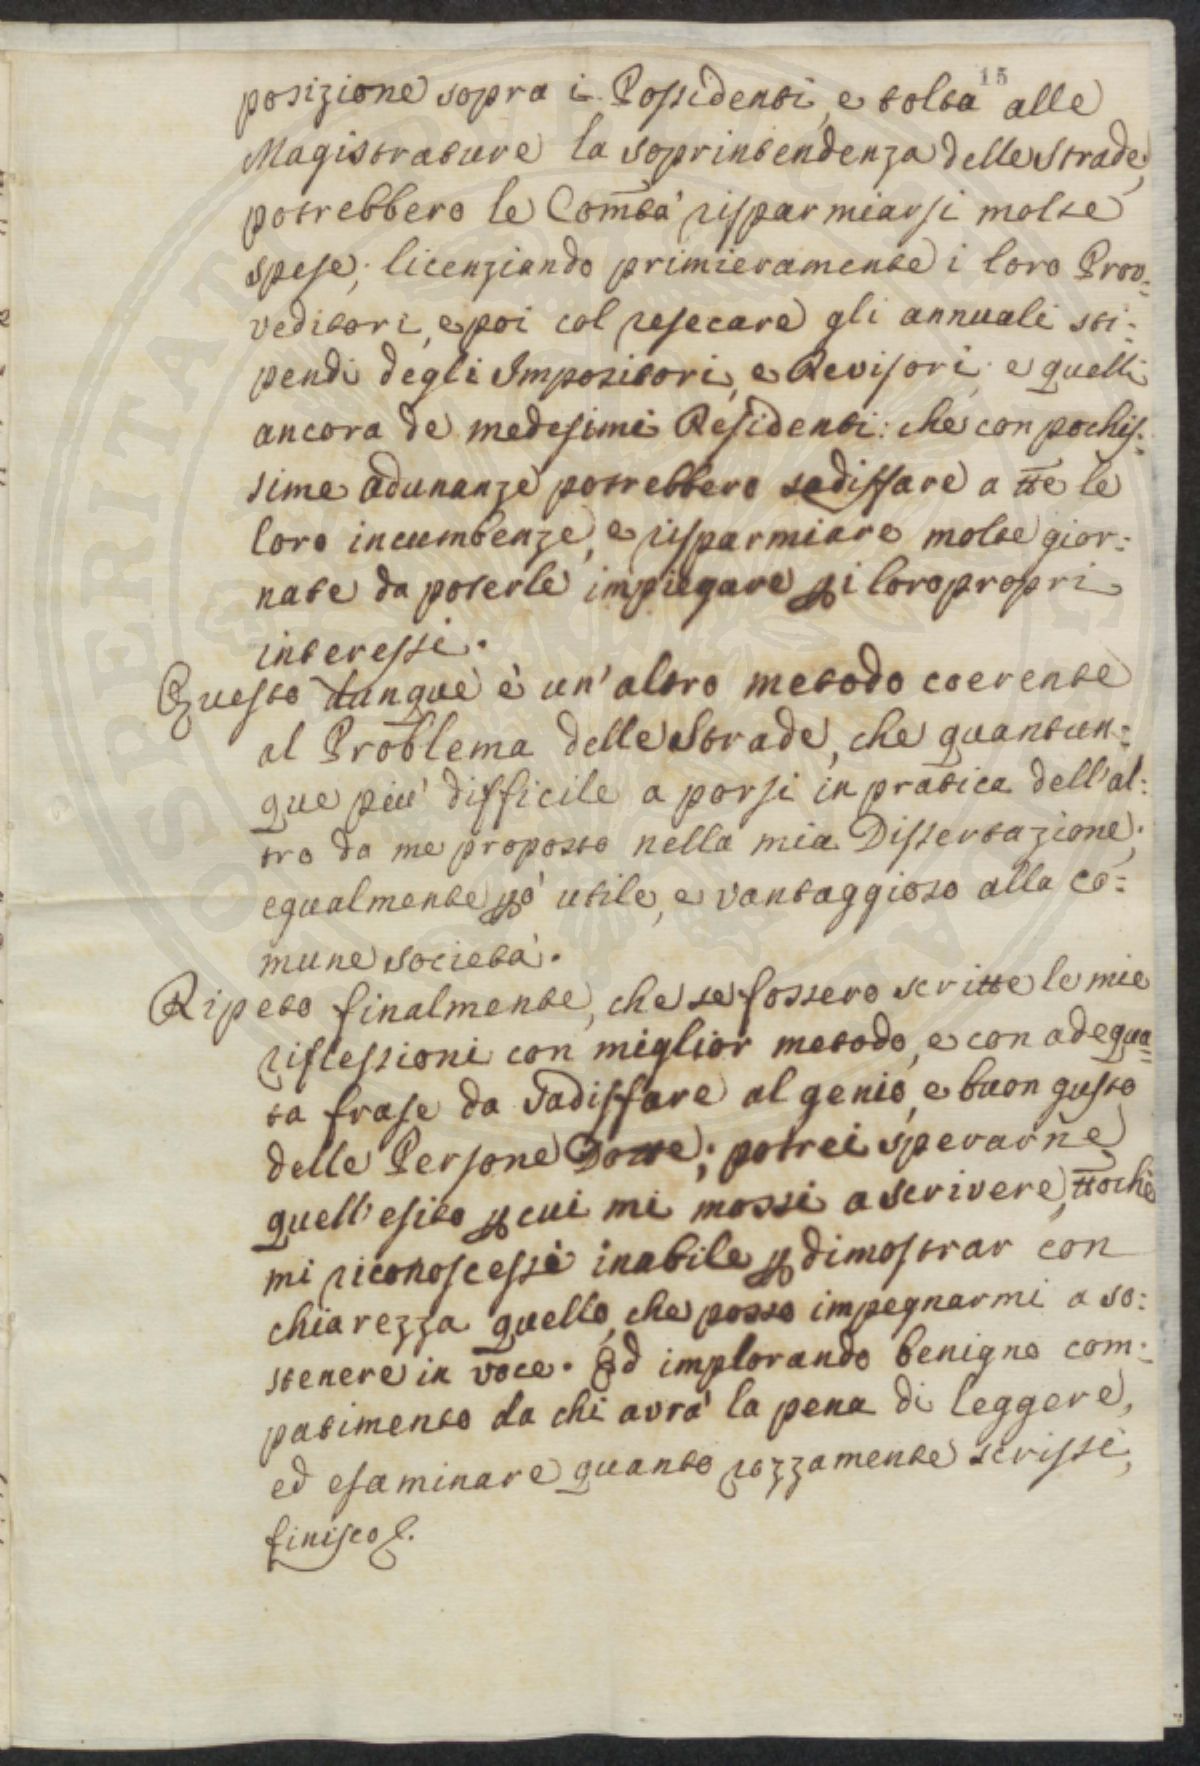 15
posizione sopra i Possidenti, e tolta alle
Magistrature la soprintendenza delle strade,
potrebbero le Com̃tà risparmiarsi molte
spese; licenziando primieramente i loro Prov:
veditori, e poi col resecare gli annuali sti:
pendi degli Impositori, e Revisori, e quelli
ancora de medesimi Residenti: che con pochis:
sime adunanze potrebbero sadisfare a tt̃e le
loro incumbenze, e risparmiare molte gior:
nate da poterle impiegare ꝑ i loro propri
interessi.
Questo dunque è un' altro metodo coerente
al Problema delle Strade, che quantun:
que più difficile a porsi in pratica dell'al:
tro da me proposto nella mia Dissertazione,
egualmente ꝑò utile, e vantaggioso alla co:
mune società.
Ripeto finalmente, che se fossero scritte le mie
riflessioni con miglior metodo, e con adequa:
ta frase da sadisfare al genio, e buon gusto
delle Persone Dotte; potrei sperarne
quell' esito ꝑ cui mi mossi a scrivere, tt̃oche
mi riconoscessi inabile ꝑ dimostrar con
chiarezza quello, che posso impegnarmi a so:
stenere in voce. Ed implorando benigno com:
patimento da chi avrà la pena di leggere,
ed esaminare quanto rozzamente scrissi,
finisco
SOSPERITATI PUBLICAE